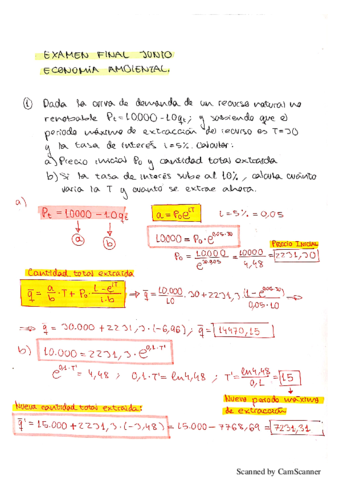 EXAMEN FINAL JUNIO
ECONOMÍA AMBIENTAL.
① Dada la curva de demanda de un recurso natural no
renovable Pt=10000-10qt; y sabiendo que el
periodo máximo de extracción del recurso es T=30
y la tasa de interés i=5%. Calcular:
a) Precio inicial P0 y cantidad total extraída
b) Si la tasa de interés sube al 10%, calcula cuánto
varía la T y cuanto se extrae ahora.
a) Pt = 10000 - 10qt
a = P0 e^iT
i = 5% = 0,05
a b
10000 = P0 · e^0,05·30
P0 = 10000/e^0,05·30 = 10000/4,48 = 2231,30
Precio Inicial
Cantidad total extraída
q̄ = a/b · T + P0 · (1-e^iT)/(i·b) ⇒ q̄ = 10.000/10 · 30 + 2231,3 · (1-e^0,05·30)/(0,05·10) ⇒
⇒ q̄ = 30.000 + 2231,3 · (-6,96) ; q̄ = 14470,15
b) 10.000 = 2231,3 · e^0,1·T'
e^0,1·T' = 4,48 ; 0,1·T' = ln4,48 ; T' = ln4,48/0,1 = 15
Nuevo periodo máximo
de extracción
Nueva cantidad total extraída:
q̄' = 15.000 + 2231,3 · (-3,48) = 15.000 - 7768,69 = 7231,31
Scanned by CamScanner